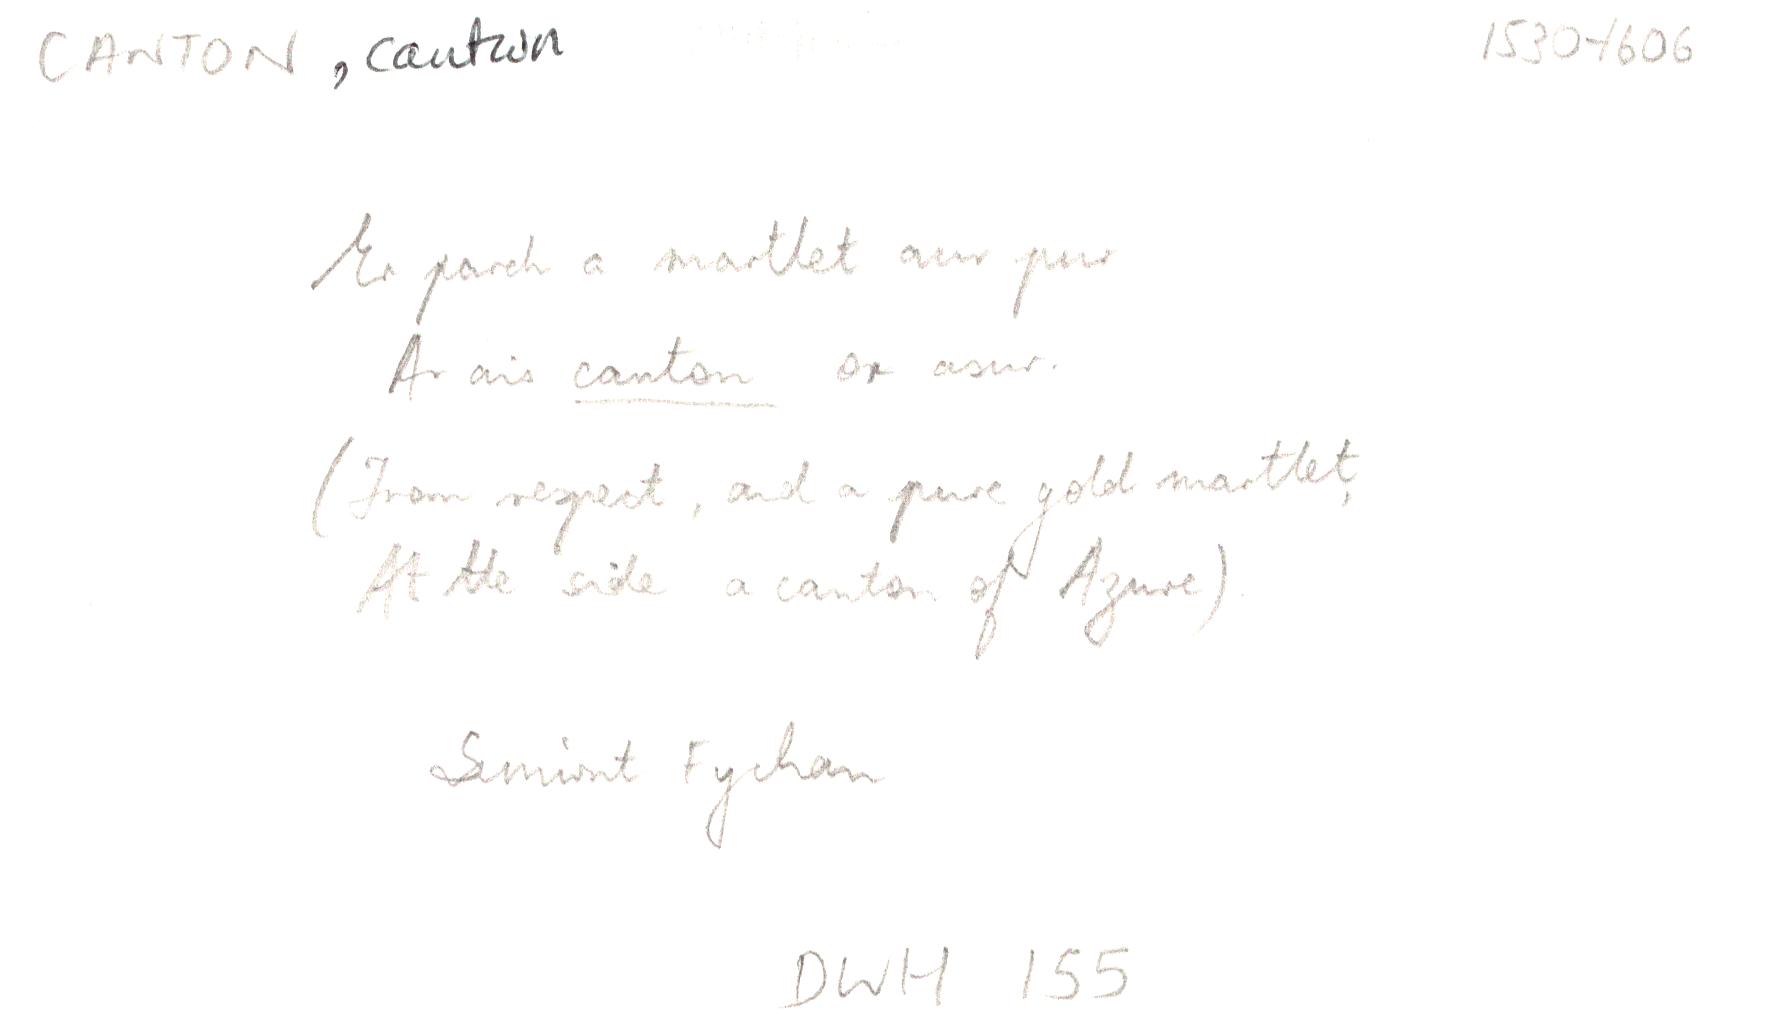 CANTON, cantwn 1530-1606
Er parch a martlet aur pur
Ar ais canton or asur.
(From respect, and a pure gold martlet,
At the side a canton of Azure)
Simwnt Fychan
DWH 155